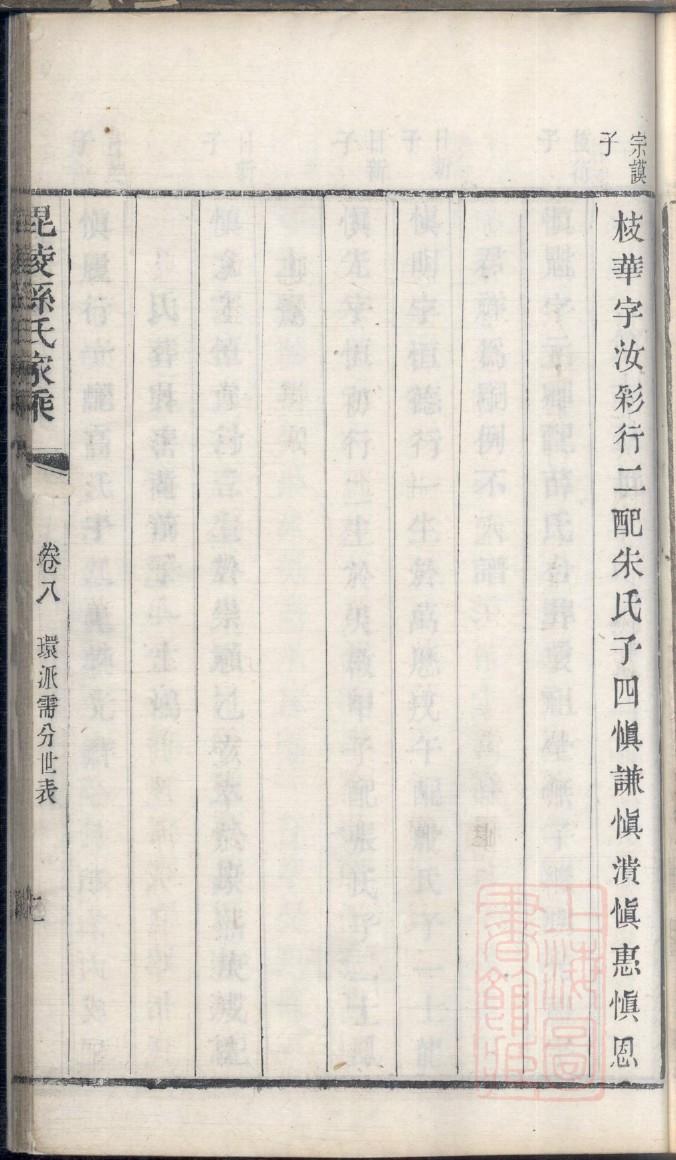 宗謨
子
枝華字汝彩行二配朱氏子四愼謙愼潰愼惠愼恩
毘陵孫氏家乘
卷八
環派需分世表
上海圖
書館藏